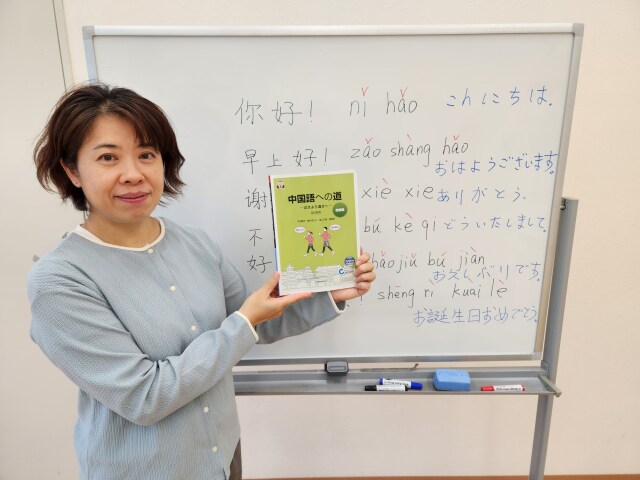 你好! nǐ hǎo こんにちは。
早上好! zǎo shàng hǎo
おはようございます。
谢 xiè xie ありがとう。
不 bú kè qi どういたしまして。
好 hǎo jiǔ bú jiàn
おひさしぶりです。
shēng rì kuài lè
お誕生日おめでとう。
中国語への道